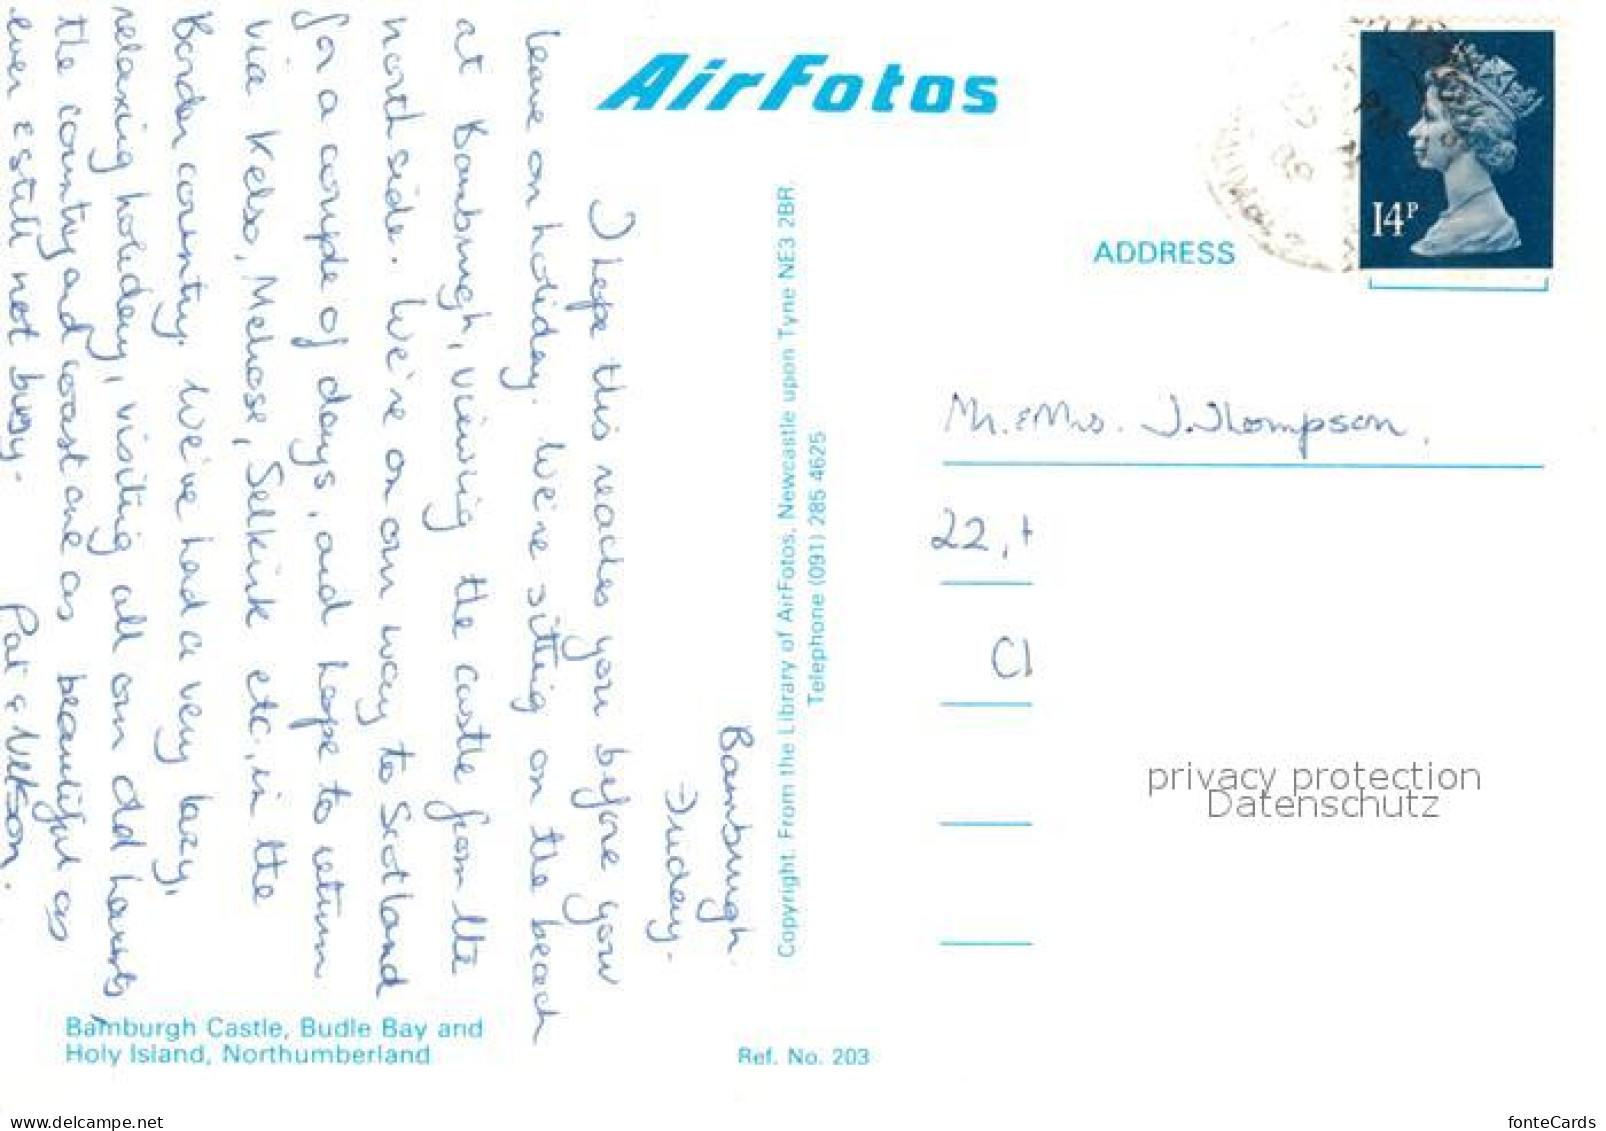 AirFotos
14P
ADDRESS
Mr. & Mrs. J. Thompson.
22, H
Cl
privacy protection
Datenschutz
Copyright. From the Library of AirFotos, Newcastle upon Tyne NE3 2BR.
Telephone (091) 285 4625
Bamburgh.
Friday.
I hope this reaches you before your
leave on holiday. We're sitting on the beach
at Bamburgh, viewing the castle from the
north side. We're on our way to Scotland
for a couple of days, and hope to return
via Kelso, Melrose, Selkirk etc., in the
Border country. We've had a very lazy,
relaxing holiday, visiting all our old haunts,
the country and coast are as beautiful as
ever & still not busy.
Pat & Watson.
Bamburgh Castle, Budle Bay and
Holy Island, Northumberland
Ref. No. 203
delcampe.net
fonteCards